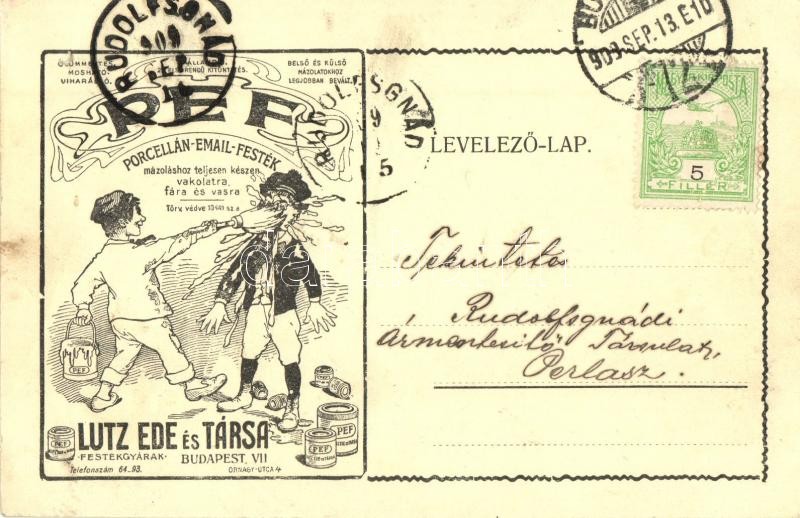 ÓLOMMENTES
MOSHATÓ
VIHARÁLLÓ.
BELSŐ ÉS KÜLSŐ
MÁZOLATOKHOZ
LEGJOBBAN BEVÁLT.
PEF
PORCELLÁN-EMAIL-FESTÉK
mázoláshoz teljesen készen
vakolatra,
fára és vasra
Törv. védve 10441 sz. a
PEF
PEF
PEF
PEF
LUTZ EDE ÉS TÁRSA
FESTÉKGYÁRAK BUDAPEST, VII
Telefonszám 64-93. ORNAGY-UTCA 4
RUDOLFSGNÁD
909
SEP
RUDOLFSGNÁD
LEVELEZŐ-LAP.
909 SEP. 13. E10
MAGYAR KIR. POSTA
5
FILLÉR
Tekintetes
Rudolfsgnádi
Ármentesítő Társulat,
Perlasz.